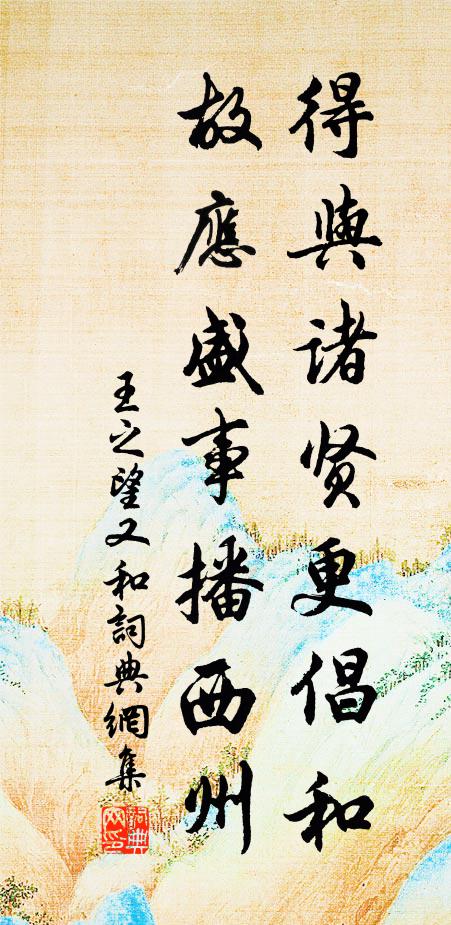 得與诸贤更倡和
故應盛事播西州
王之望又和詞典網集
詞典